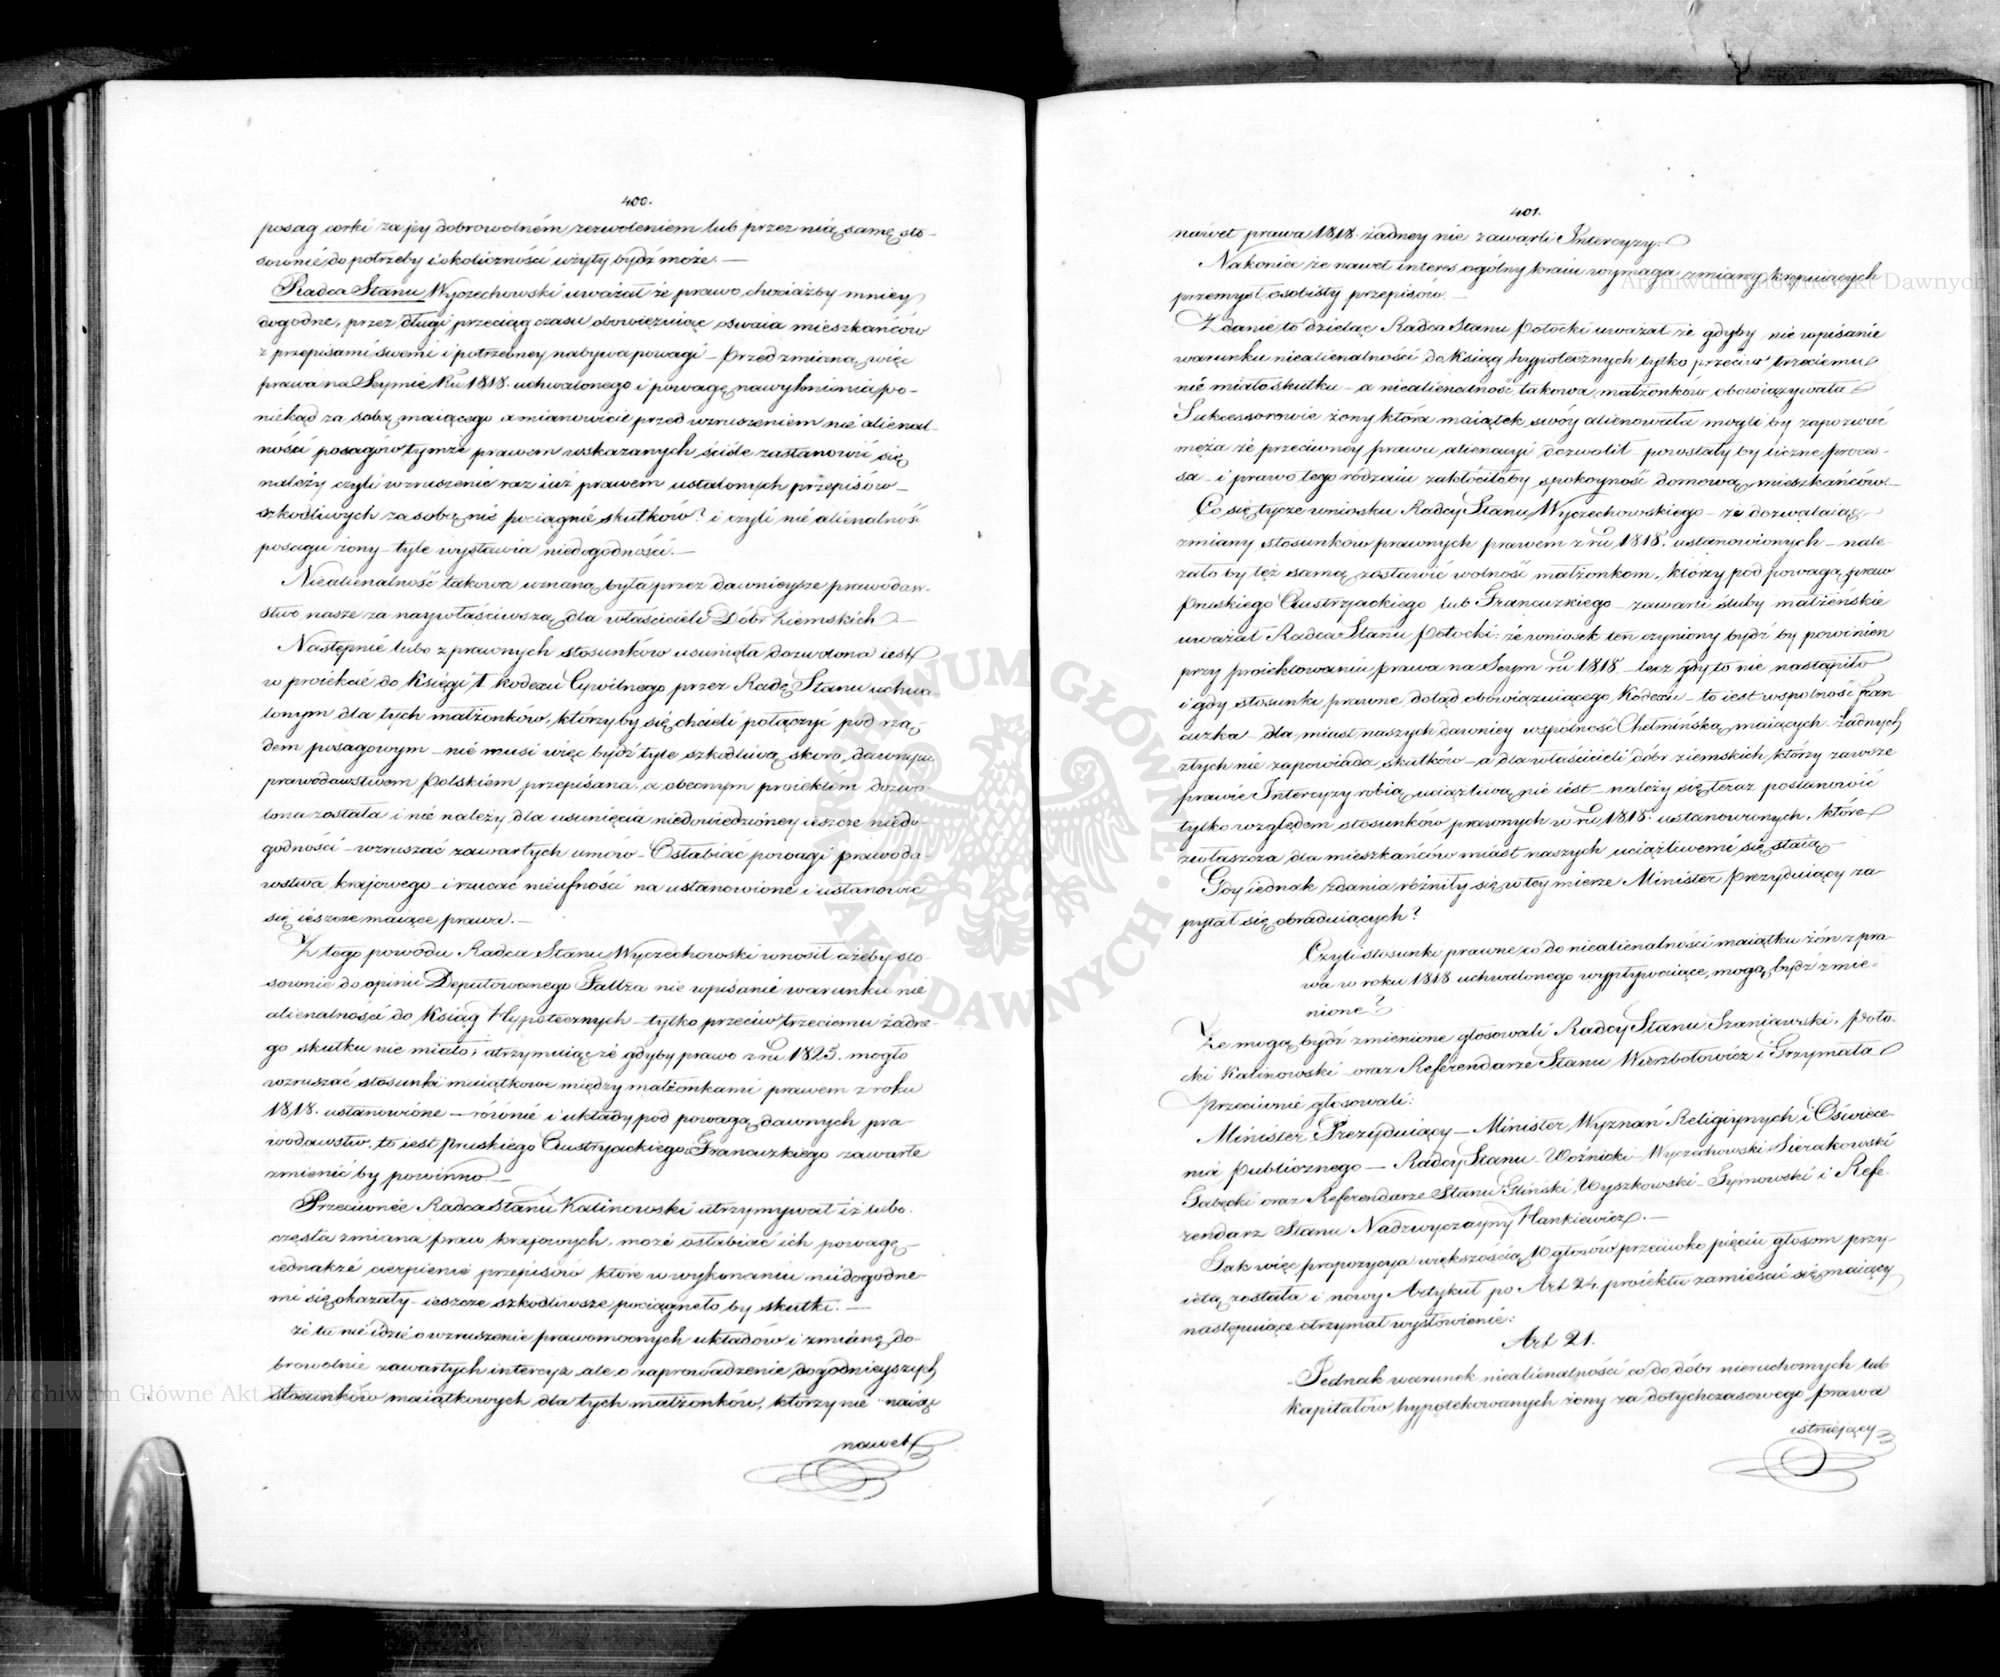 400.
posag corki za jey dobrowolném zezwoleniem lub przez nią samę sto-
sownie do potrzeby i okoliczności użyty bydź może. —
Radca Stanu Wyczechowski uważał że prawo chociażby mniey
dogodne, przez długi przeciąg czasu obowięzuiąc oswaia mieszkańców
z przepisami swemi i potrzebney nabywa powagi — Przed zmianą więc
prawa na Seymie Ru 1818 uchwalonego i powagę nawyknienia po-
niekąd za sobą maiącego a mianowicie przed wzruszeniem nie alienal-
ności posagów tymże prawem wskazanych ściśle zastanowić się
należy czyli wzruszenie raz iuż prawem ustalonych przepisów —
szkodliwych za sobą nie pociągnie skutków? i czyli nie alienalność
posagu żony — tyle wystawia niedogodności. —
Niealienalność takowa uznaną była przez dawnieysze prawodaw-
stwo nasze za naywłaściwszą dla właścicieli Dóbr Ziemskich —
Następnie lubo z prawnych stosunków usunięta dozwolona iest
w proiekcie do Księgi 1 kodexu Cywilnego przez Radę Stanu uchwa-
lonym dla tych małżonków, którzy by się chcieli połączyć pod rzą-
dem posagowym — nie musi więc bydź tyle szkodliwą skoro dawnym
prawodawstwem Polskiem przepisana, a obecnym proiektem dozwo-
lona została i nie należy dla usunięcia niedowiedzioney ieszcze niedo-
godności — wzruszać zawartych umów — Osłabiać powagi prawoda-
wstwa krajowego i rzucać nieufności na ustanowione i ustanowić
się ieszcze maiące prawa. —
Z tego powodu Radca Stanu Wyczechowski wnosił ażeby sto-
sownie do opinii Deputowanego Faltza nie wpisanie warunku nie
alienalności do Ksiąg Hypotecznych — tylko przeciw trzeciemu żadne-
go skutku nie miało, utrzymuiąc że gdyby prawo z ru 1825. mogło
wzruszać stosunki maiątkowe między małżonkami prawem z roku
1818. ustanowione — równie i układy pod powagą dawnych pra-
wodawstw, to iest Pruskiego Austryackiego i Francuzkiego zawarte
zmienić by powinno —
Przeciwnie Radca Stanu Kalinowski utrzymywał iż lubo
częsta zmiana praw krajowych, może osłabiać ich powagę —
iednakże cierpienie przepisów które w wykonaniu niedogodne-
mi się okazały — ieszcze szkodliwsze pociągnęło by skutki. —
że tu nie idzie o wzruszenie prawomocnych układów i zmianę do-
browolnie zawartych intercyz ale o zaprowadzenie dogodnieyszych
stosunków maiątkowych dla tych małżonków, którzy nie
nawet
401.
nawet prawa 1818 żadney nie zawarli Intercyzy. —
Nakoniec że nawet interes ogólny kraiu wymaga zmiany krępuiących
przemysł osobisty przepisów —
Zdanie to dzieląc Radca Stanu Potocki uważał że gdyby nie wpisanie
warunku niealienalności do Ksiąg hypotecznych tylko przeciw trzeciemu
nie miało skutku — a niealienalność takowa małżonków obowiązywała
Sukcessorowie żony która maiątek swóy alienowała mogli by zapozwać
męża że przeciwney prawu alienacyi dozwolił — powstały by liczne proces-
sa — i prawo tego rodzaiu zakłóciłoby spokoyność domową mieszkańców. —
Co się tycze wniosku Radcy Stanu Wyczechowskiego — że dozwalaiąc
zmiany stosunków prawnych prawem z ru 1818. ustanowionych — nale-
żało by też samą zostawić wolność małżonkom, którzy pod powagą praw
Pruskiego Austryackiego lub Francuzkiego — zawarli śluby małżeńskie
uważał Radca Stanu Potocki: że wniosek ten czyniony bydź by powinien
przy proiektowaniu prawa na Seym ru 1818 — lecz gdy to nie nastąpiło
i gdy stosunki prawne dotąd obowiązuiącego Kodexu — to iest wspolność fran
cuzka — dla miast naszych dawniey wspólność Chełmińską maiących żadnych
złych nie zapowiada skutków — a dla właścicieli dóbr ziemskich, którzy zawsze
prawie Intercyzy robią uciążliwą nie iest — należy się teraz postanowić
tylko względem stosunków prawnych w ru 1818. ustanowionych, które
zwłaszcza dla mieszkańców miast naszych uciążliwemi się staią —
Gdy iednak zdania różniły się w tey mierze Minister Prezyduiący za-
pytał się obraduiących?
Czyli stosunki prawne co do niealienalności maiątku żon z pra-
wa w roku 1818 uchwalonego wypływaiące, mogą bydź zmie-
nione?
Że mogą bydź zmienione głosowali Radcy Stanu Szaniawski, Poto-
cki Kalinowski — oraz Referendarze Stanu Wierzbołowicz i Grzymała
Przeciwnie głosowali:
Minister Prezyduiący — Minister Wyznań Religiynych i Oświece-
nia Publicznego — Radcy Stanu — Woźnicki Wyczechowski Sierakowski
Gałęcki oraz Referendarze Stanu Gliński, Wyszkowski — Tymowski i Refe-
rendarz Stanu Nadzwyczayny Hankiewicz. —
Tak więc propozycya większością 10 głosów przeciwko pięciu głosom przy-
iętą została i nowy Artykuł po Art 24 proiektu zamieścić się maiący
następuiące otrzymał wysłowienie:
Art 21.
"Jednak warunek niealienalności co do dóbr nieruchomych lub
kapitałów hypotekowanych żony za dotychczasowego prawa
istniejący
Archiwum Główne Akt Dawnych
Archiwum Główne Akt Dawnych
ARCHIWUM GŁÓWNE AKT DAWNYCH